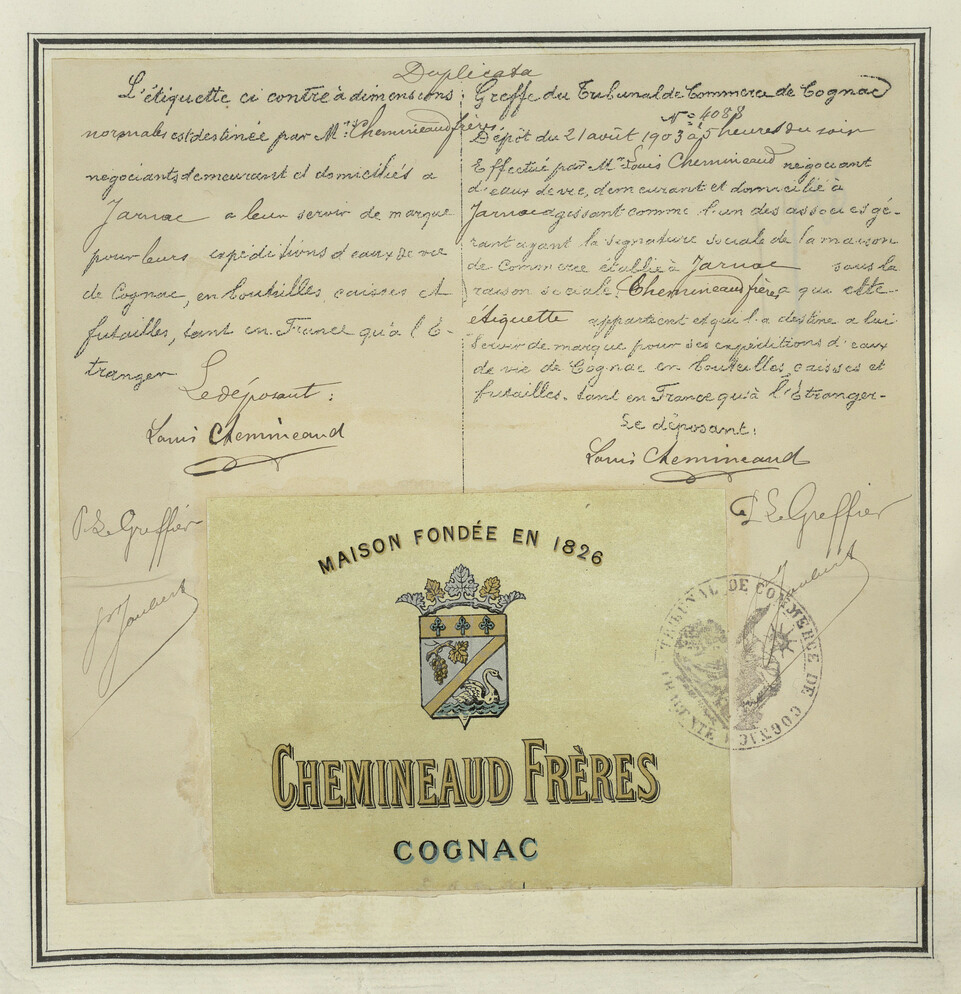 Duplicata
L'étiquette ci contre à dimensions
normales est destinée par Mrs Chemineaud frères
négociants demeurant et domiciliés a
Jarnac a leur servir de marque
pour leurs expéditions d'eaux de vie
de Cognac, en bouteilles, caisses et
futailles, tant en France qu'à l'É-
tranger
Le déposant :
Louis Chemineaud
P. Le Greffier
Joubert
Greffe du Tribunal de Commerce de Cognac
No 4088
Dépôt du 21 août 1903 à 5 heures du soir
Effectué par Mr Louis Chemineaud négociant
d'eaux de vie, demeurant et domicilié à
Jarnac agissant comme l'un des associés gé-
rant ayant la signature sociale de la maison
de Commerce établie à Jarnac sous la
raison sociale, Chemineaud frères a qui cette
etiquette appartient et qui l'a destine a lui
servir de marque pour ses expéditions d'eaux
de vie de Cognac en bouteilles, caisses et
futailles. tant en France qu'à l'Étranger-
Le déposant:
Louis Chemineaud
P. Le Greffier
Joubert
TRIBUNAL DE COMMERCE DE COGNAC
CHARENTE
MAISON FONDÉE EN 1826
CHEMINEAUD FRÈRES
COGNAC